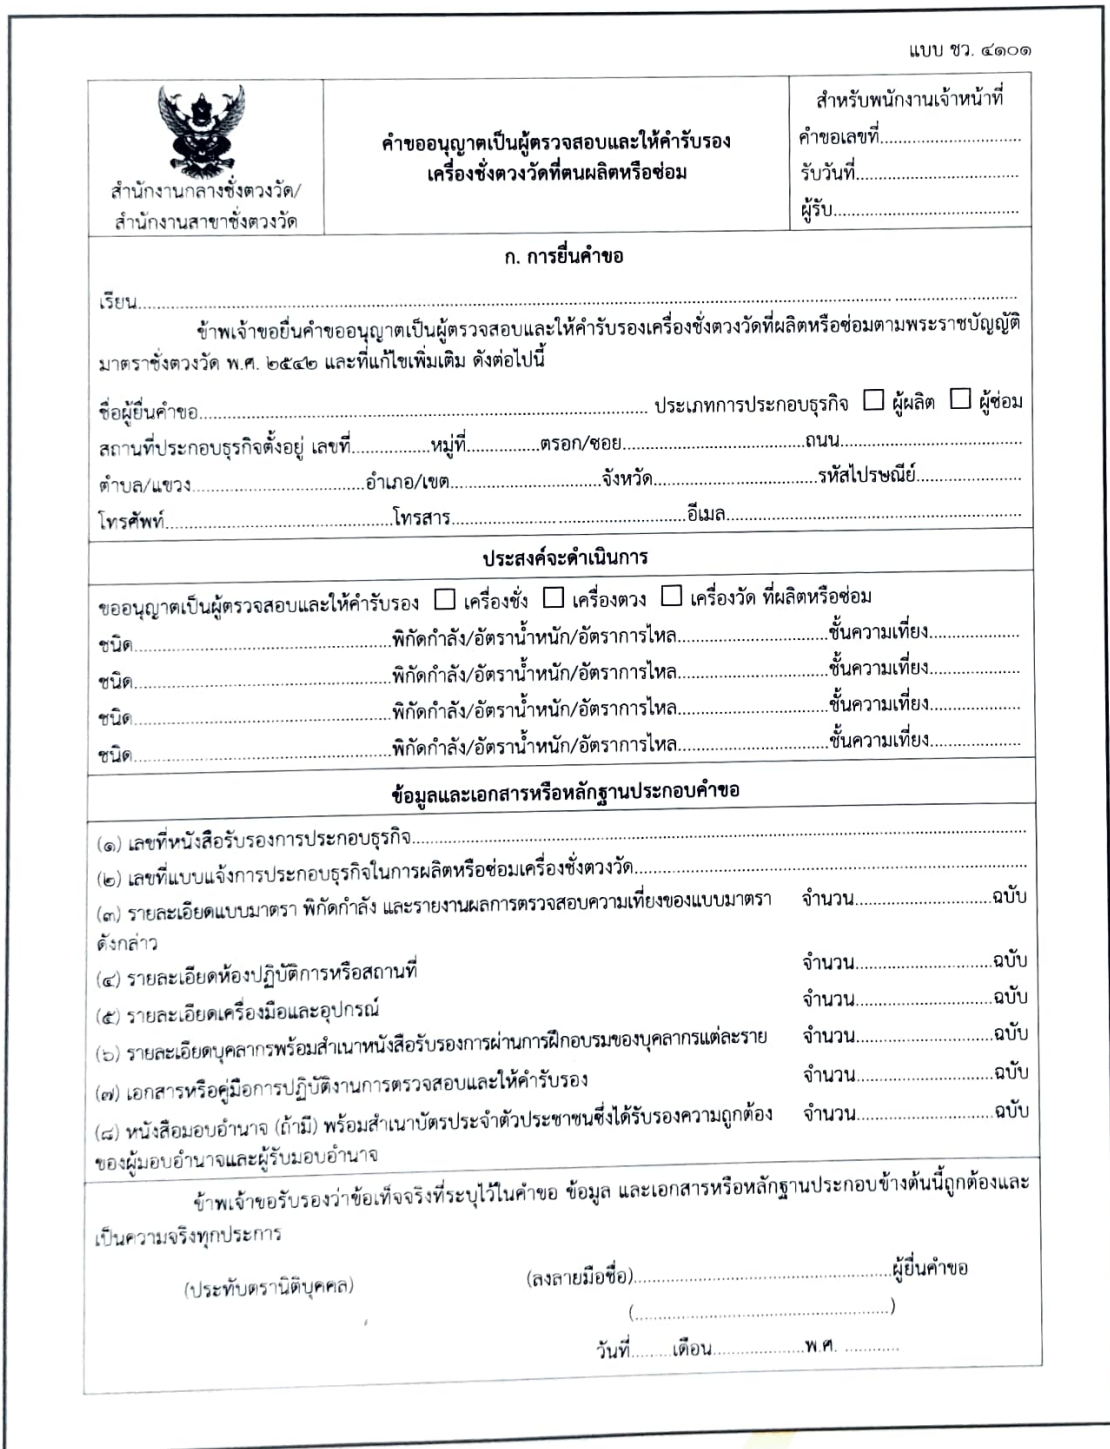 แบบ ชว. ๔๑๐๑
สำนักงานกลางชั่งตวงวัด/
สำนักงานสาขาชั่งตวงวัด
คำขออนุญาตเป็นผู้ตรวจสอบและให้คำรับรอง
เครื่องชั่งตวงวัดที่ตนผลิตหรือซ่อม
สำหรับพนักงานเจ้าหน้าที่
คำขอเลขที่..............................
รับวันที่..................................
ผู้รับ.......................................
ก. การยื่นคำขอ
เรียน......................................................................................................................
ข้าพเจ้าขอยื่นคำขออนุญาตเป็นผู้ตรวจสอบและให้คำรับรองเครื่องชั่งตวงวัดที่ผลิตหรือซ่อมตามพระราชบัญญัติ
มาตราชั่งตวงวัด พ.ศ. ๒๕๔๒ และที่แก้ไขเพิ่มเติม ดังต่อไปนี้
ชื่อผู้ยื่นคำขอ........................................................ ประเภทการประกอบธุรกิจ ☐ ผู้ผลิต ☐ ผู้ซ่อม
สถานที่ประกอบธุรกิจตั้งอยู่ เลขที่................หมู่ที่...............ตรอก/ซอย..............................ถนน..............................
ตำบล/แขวง..............................อำเภอ/เขต..............................จังหวัด..............................รหัสไปรษณีย์....................
โทรศัพท์..............................โทรสาร..............................อีเมล..............................
ประสงค์จะดำเนินการ
ขออนุญาตเป็นผู้ตรวจสอบและให้คำรับรอง ☐ เครื่องชั่ง ☐ เครื่องตวง ☐ เครื่องวัด ที่ผลิตหรือซ่อม
ชนิด..............................พิกัดกำลัง/อัตราน้ำหนัก/อัตราการไหล..............................ชั้นความเที่ยง....................
ชนิด..............................พิกัดกำลัง/อัตราน้ำหนัก/อัตราการไหล..............................ชั้นความเที่ยง....................
ชนิด..............................พิกัดกำลัง/อัตราน้ำหนัก/อัตราการไหล..............................ชั้นความเที่ยง....................
ชนิด..............................พิกัดกำลัง/อัตราน้ำหนัก/อัตราการไหล..............................ชั้นความเที่ยง....................
ข้อมูลและเอกสารหรือหลักฐานประกอบคำขอ
(๑) เลขที่หนังสือรับรองการประกอบธุรกิจ............................................................
(๒) เลขที่แบบแจ้งการประกอบธุรกิจในการผลิตหรือซ่อมเครื่องชั่งตวงวัด..............................
(๓) รายละเอียดแบบมาตรา พิกัดกำลัง และรายงานผลการตรวจสอบความเที่ยงของแบบมาตรา จำนวน..............................ฉบับ
ดังกล่าว
(๔) รายละเอียดห้องปฏิบัติการหรือสถานที่ จำนวน..............................ฉบับ
(๕) รายละเอียดเครื่องมือและอุปกรณ์ จำนวน..............................ฉบับ
(๖) รายละเอียดบุคลากรพร้อมสำเนาหนังสือรับรองการผ่านการฝึกอบรมของบุคลากรแต่ละราย จำนวน..............................ฉบับ
(๗) เอกสารหรือคู่มือการปฏิบัติงานการตรวจสอบและให้คำรับรอง จำนวน..............................ฉบับ
(๘) หนังสือมอบอำนาจ (ถ้ามี) พร้อมสำเนาบัตรประจำตัวประชาชนซึ่งได้รับรองความถูกต้อง จำนวน..............................ฉบับ
ของผู้มอบอำนาจและผู้รับมอบอำนาจ
ข้าพเจ้าขอรับรองว่าข้อเท็จจริงที่ระบุไว้ในคำขอ ข้อมูล และเอกสารหรือหลักฐานประกอบข้างต้นนี้ถูกต้องและ
เป็นความจริงทุกประการ
(ประทับตรานิติบุคคล) (ลงลายมือชื่อ)..................................................ผู้ยื่นคำขอ
(..................................................)
วันที่.........เดือน....................พ.ศ. ............